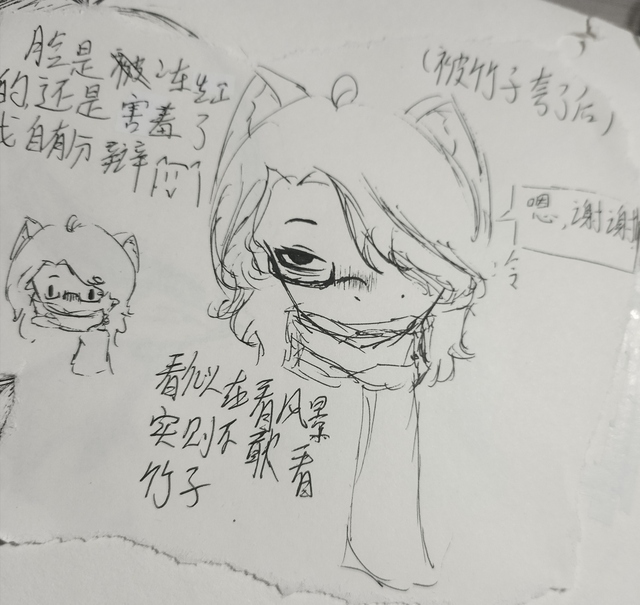 脸是被冻红
的还是害羞了
我自有分辨
(被竹子夸了后)
嗯,谢谢
冷
看似在看风景
实则不敢看
竹子